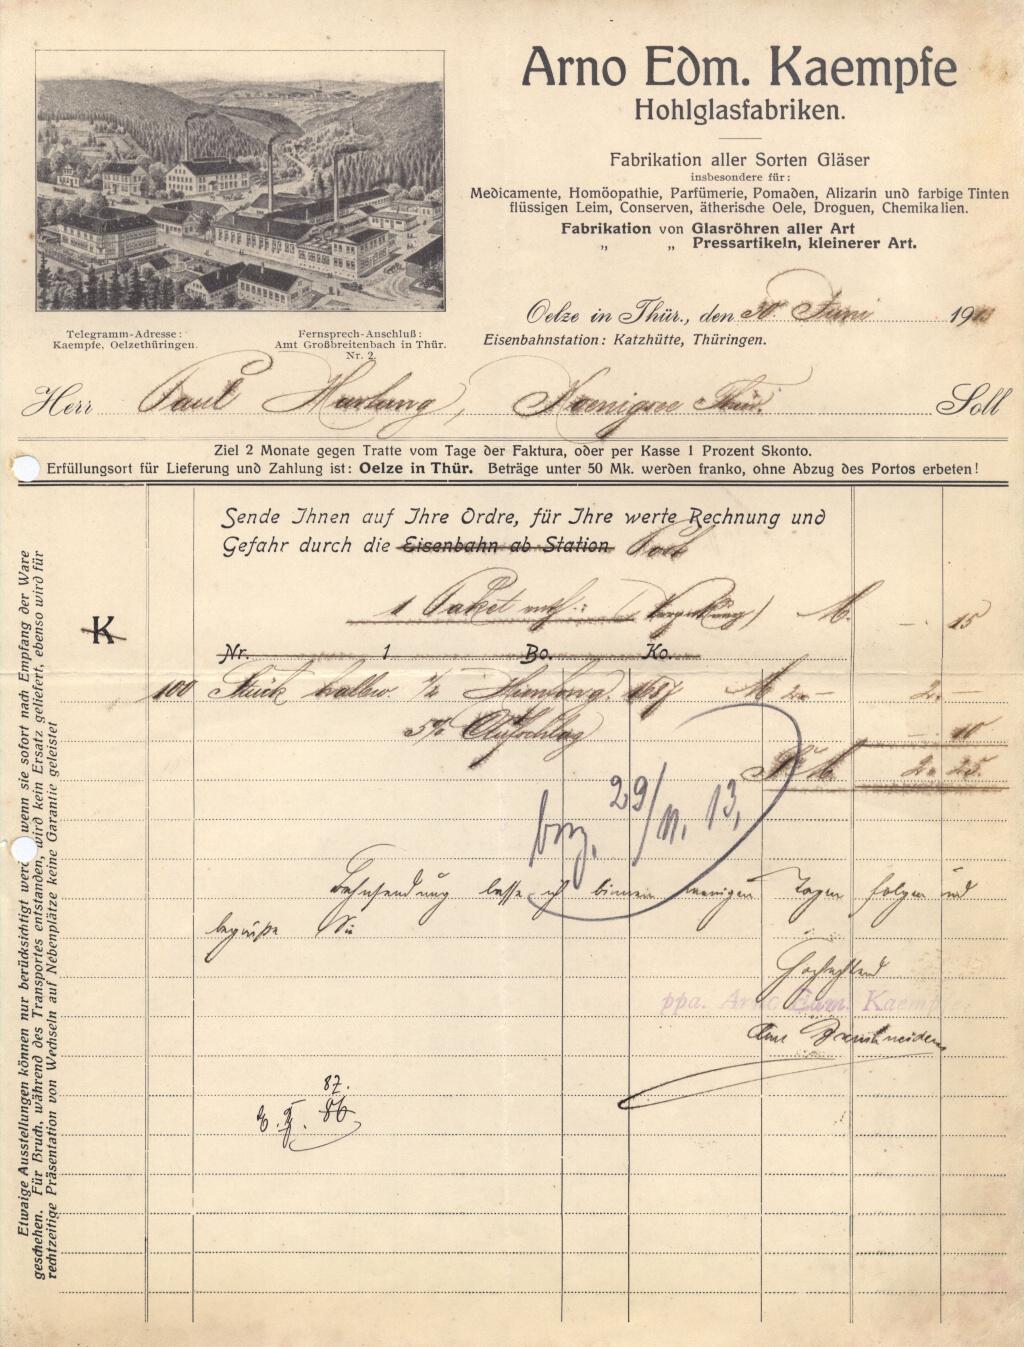 Arno Edm. Kaempfe
Hohlglasfabriken.
Fabrikation aller Sorten Gläser
insbesondere für:
Medicamente, Homöopathie, Parfümerie, Pomaden, Alizarin und farbige Tinten
flüssigen Leim, Conserven, ätherische Oele, Droguen, Chemikalien.
Fabrikation von Glasröhren aller Art
„ „ Pressartikeln, kleinerer Art.
Telegramm-Adresse:
Kaempfe, Oelzethüringen.
Fernsprech-Anschluß:
Amt Großbreitenbach in Thür.
Nr. 2.
Oelze in Thür., den 30. Juni 1913
Eisenbahnstation: Katzhütte, Thüringen.
Herr Paul Hartung, Koenigsee Thür. Soll
Ziel 2 Monate gegen Tratte vom Tage der Faktura, oder per Kasse 1 Prozent Skonto.
Erfüllungsort für Lieferung und Zahlung ist: Oelze in Thür. Beträge unter 50 Mk. werden franko, ohne Abzug des Portos erbeten!
Sende Ihnen auf Ihre Ordre, für Ihre werte Rechnung und
Gefahr durch die Eisenbahn ab Station Post
1 Paket (Verpackung) M. —. 15
K
Nr. 1 Bo. Ko.
100 Stück 1687 M 2.— 2. —
5% Aufschlag —. 10
M. 2. 25.
29/11. 13.
Bahnsendung lasse ich binnen wenigen Tagen folgen und
begrüße Sie
Hochachtend
ppa. Arno Edm. Kaempfe
87.
86
Etwaige Ausstellungen können nur berücksichtigt werden, wenn sie sofort nach Empfang der Ware
geschehen. Für Bruch, während des Transportes entstanden, wird kein Ersatz geliefert, ebenso wird für
rechtzeitige Präsentation von Wechseln auf Nebenplätze keine Garantie geleistet